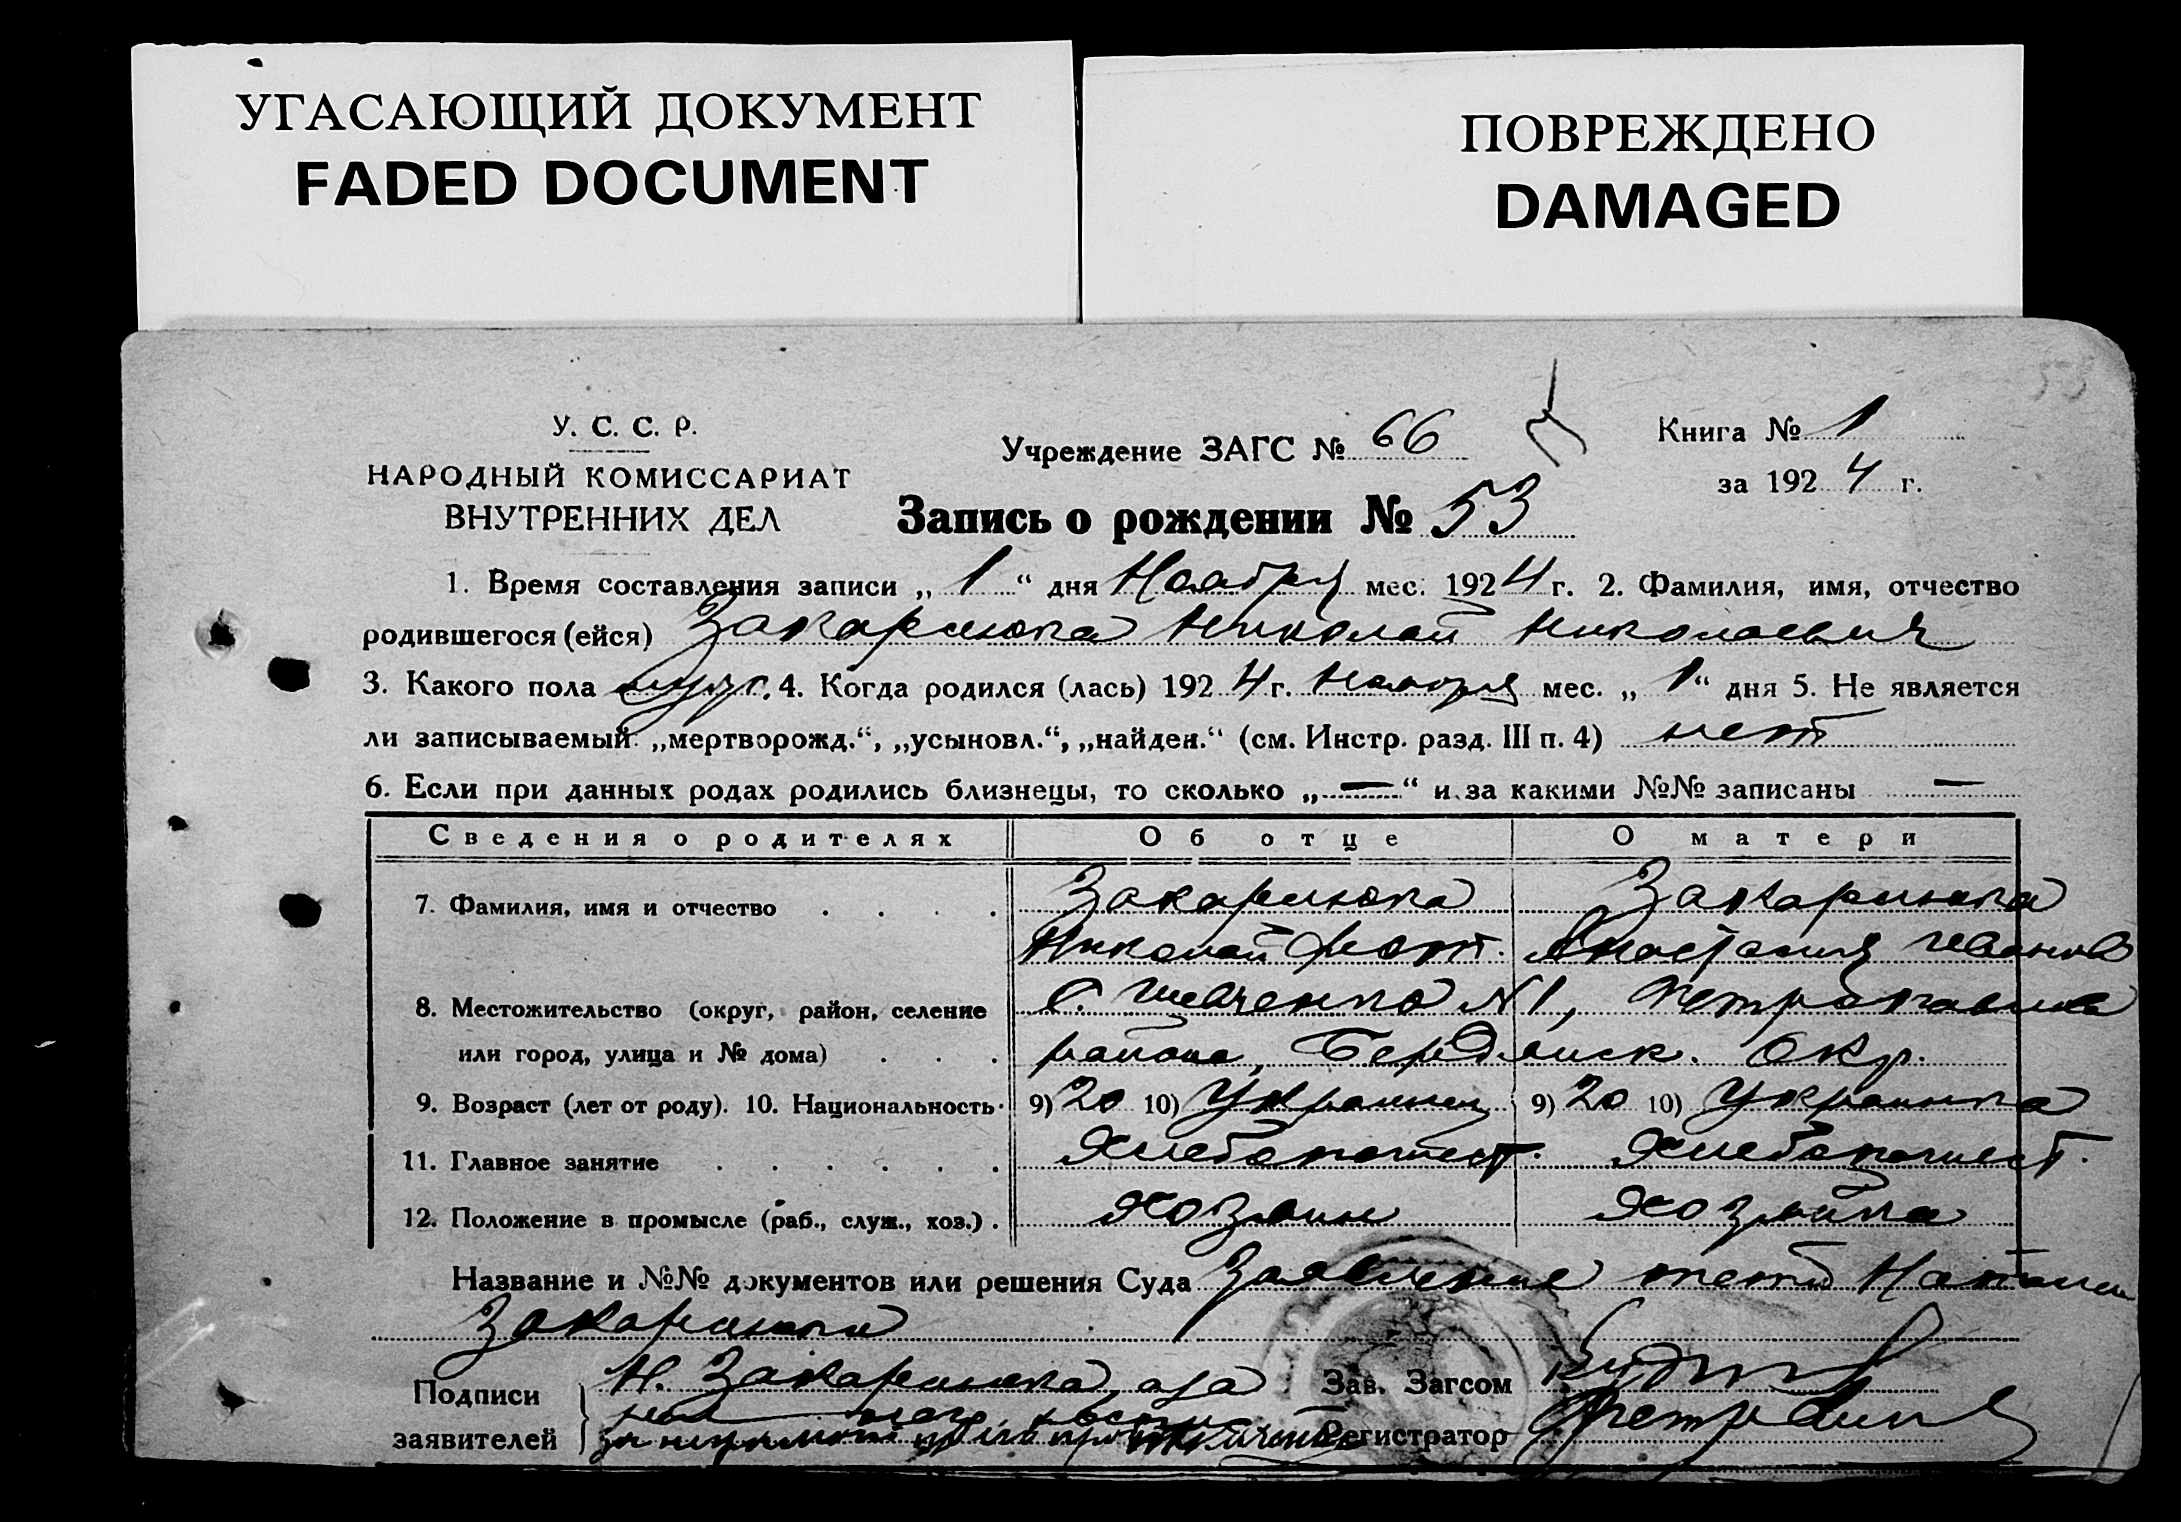 УГАСАЮЩИЙ ДОКУМЕНТ
FADED DOCUMENT
ПОВРЕЖДЕНО
DAMAGED
У. С. С. Р.
НАРОДНЫЙ КОМИССАРИАТ
ВНУТРЕННИХ ДЕЛ
Учреждение ЗАГС № 66
Книга № 1
за 1924 г.
Запись о рождении № 53
1. Время составления записи „ 1 “ дня Ноября мес. 1924 г. 2. Фамилия, имя, отчество
родившегося (ейся) Закарлюка Николай Николаевич
3. Какого пола муж. 4. Когда родился (лась) 1924 г. Ноября мес. „ 1 “ дня 5. Не является
ли записываемый „мертворожд.“, „усыновл.“, „найден.“ (см. Инстр. разд. III п. 4) нет
6. Если при данных родах родились близнецы, то сколько „ — “ и за какими №№ записаны —
Сведения о родителях Об отце О матери
7. Фамилия, имя и отчество Закарлюка Закарлюка
Николай Анастасия Иванов
8. Местожительство (округ, район, селение С. Шевченко № 1, Петропавлов
или город, улица и № дома) района, Бердянск. Окр.
9. Возраст (лет от роду). 10. Национальность 9) 20 10) Украинец 9) 20 10) Украинка
11. Главное занятие Хлебопашест. Хлебопашест.
12. Положение в промысле (раб., служ., хоз.) Хозяин Хозяйка
Название и №№ документов или решения Суда Заявление тетки Наталии
Закарлюки
Подписи
заявителей
Н. Закарлюка, а за
Зав. Загсом
Регистратор